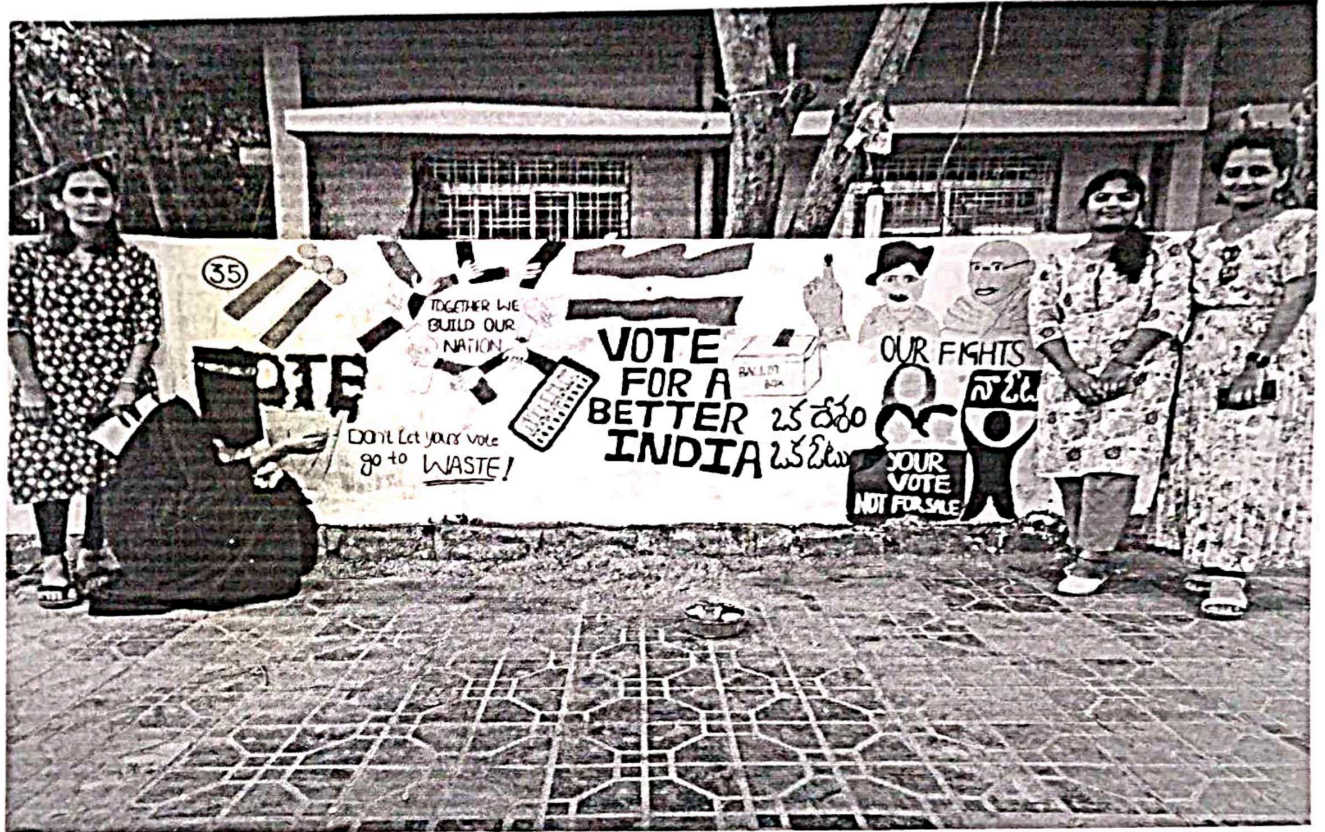 35
VOTE
TOGETHER WE
BUILD OUR
NATION
Don't Let your vote
go to WASTE!
VOTE
FOR A
BETTER
INDIA
BALLOT
BOX
ఒక దేశం
ఒక ఓటు
OUR FIGHTS
YOUR
VOTE
NOT FOR SALE
నా ఓటు